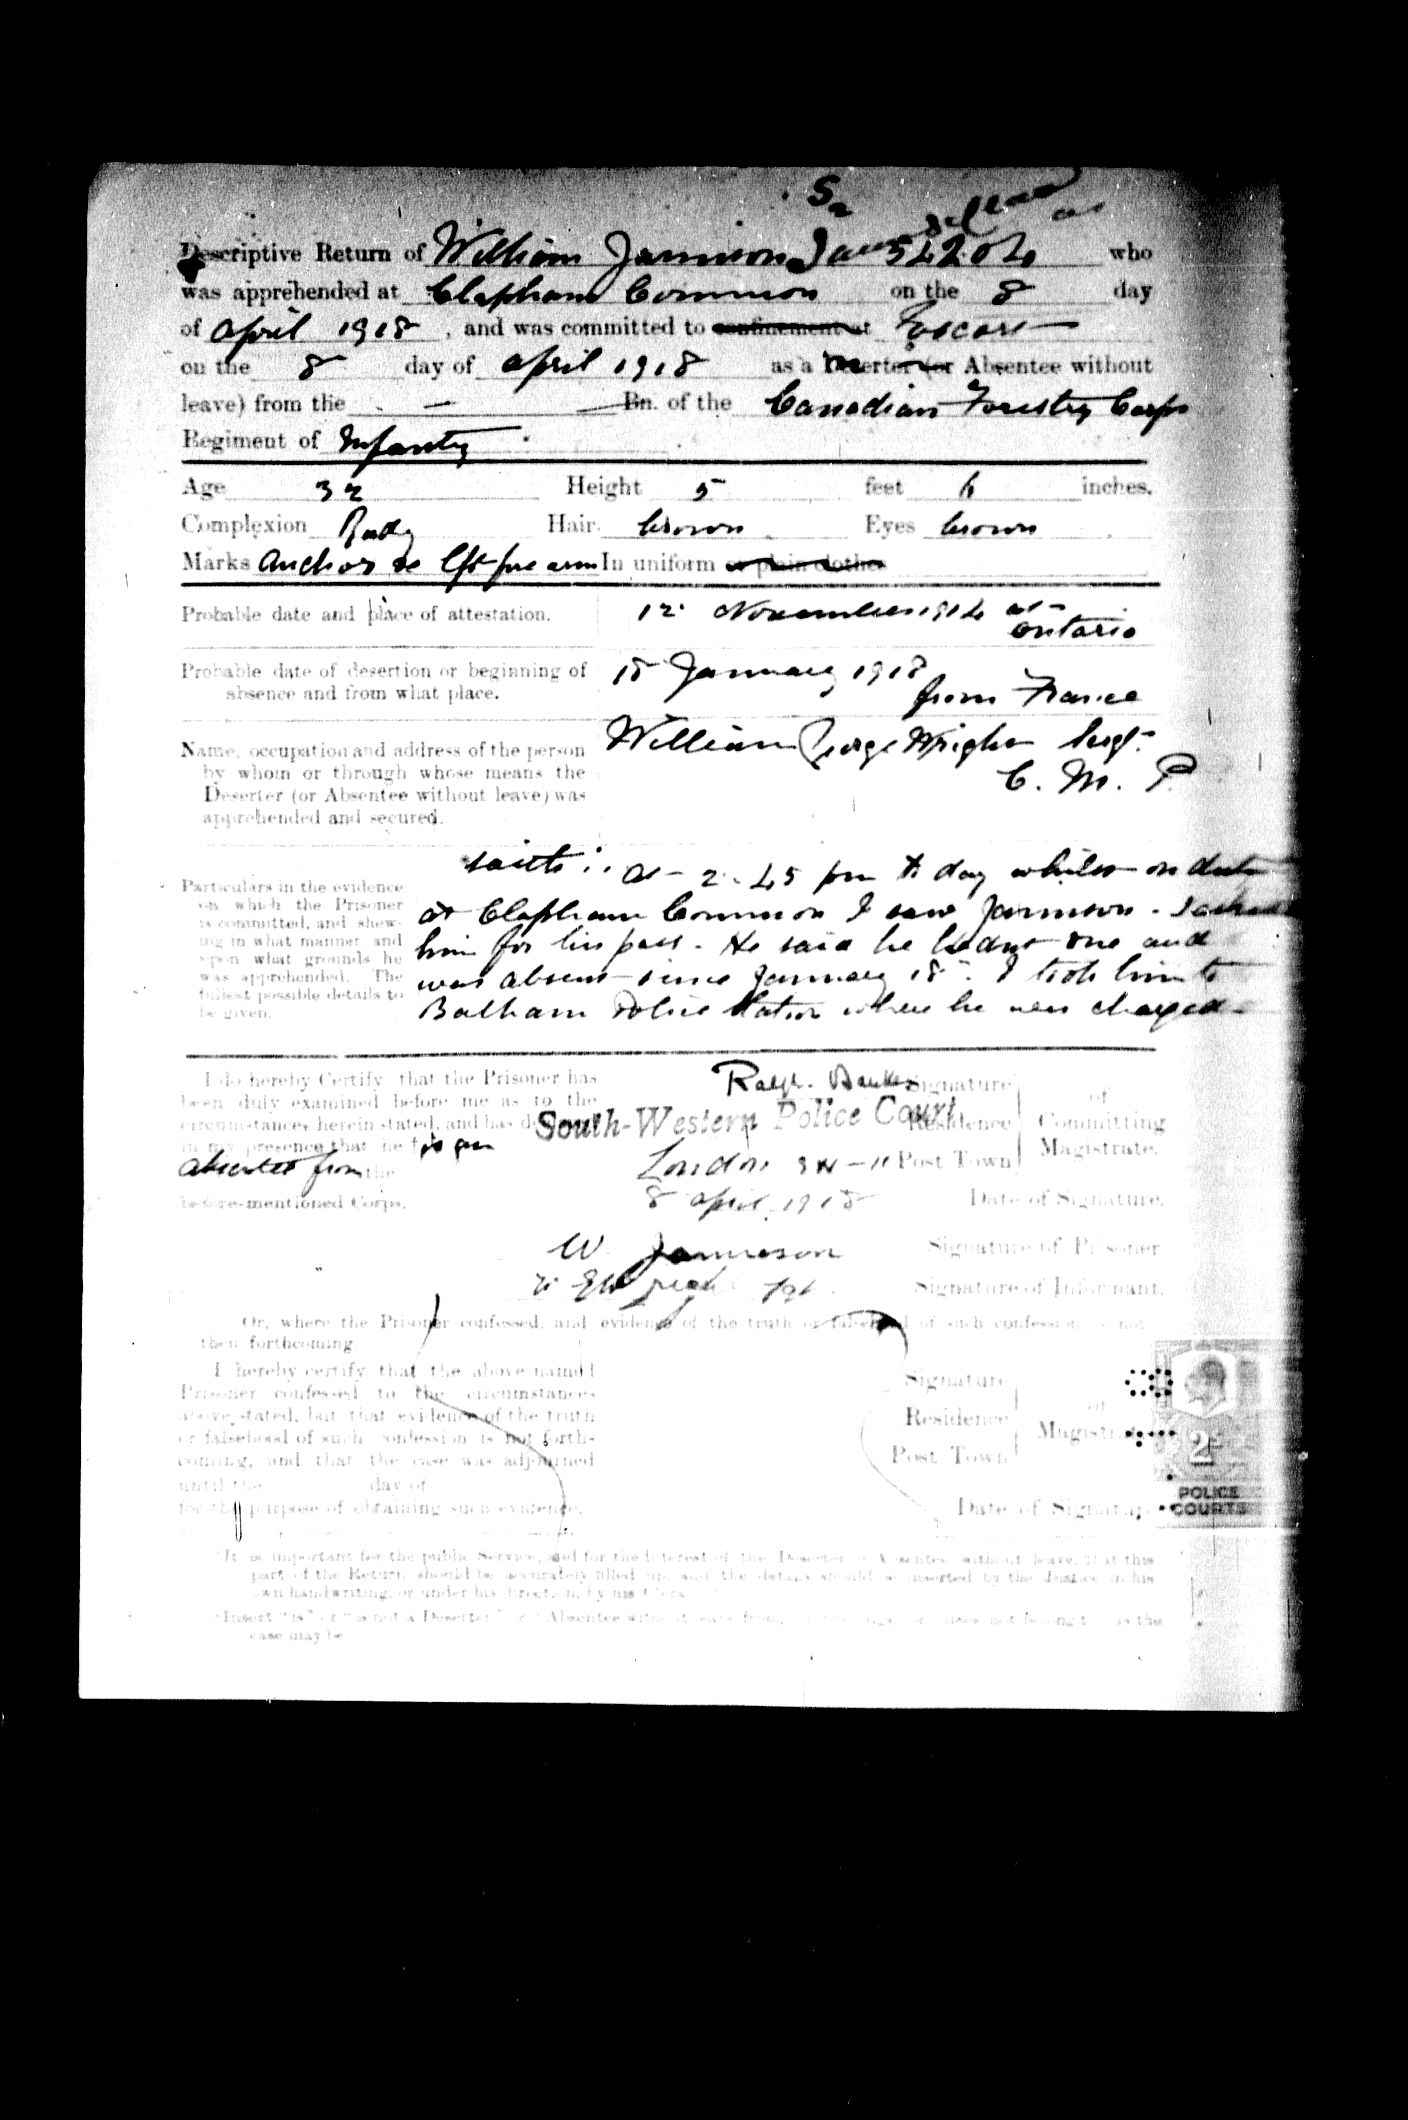 Descriptive Return of William Jamieson 54204 who
was apprehended at Clapham Common on the 8 day
of April 1918, and was committed to confinement at Escort
on the 8 day of April 1918 as a Deserter (or Absentee without
leave) from the — Bn. of the Canadian Forestry Corps
Regiment of Infantry
Age 32 Height 5 feet 6 inches.
Complexion Rudy Hair brown Eyes brown
Marks Anchor lft fore arm In uniform or plain clothes
Probable date and place of attestation. 12 November 1914 at
Ontario
Probable date of desertion or beginning of
absence and from what place. 18 January 1918
from France
Name, occupation and address of the person
by whom or through whose means the
Deserter (or Absentee without leave) was
apprehended and secured.
William George Wright Sergt
C. M. P.
Particulars in the evidence
on which the Prisoner
is committed, and shew-
ing in what manner and
upon what grounds he
was apprehended. The
fullest possible details to
be given.
saith: At 2.45 pm to day whilst on duty
at Clapham Common I saw Jamieson. I asked
him for his pass. He said he hadnt one and
was absent since January 18. I took him to
Balham Police Station where he was charged
I do hereby Certify that the Prisoner has
been duly examined before me as to the
circumstances herein stated, and has
in my presence that he is an
absentee from the
before-mentioned Corps.
Ralph Bankes Signature
South-Western Police Court Residence
London SW-11 Post Town
of
Committing
Magistrate.
8 April 1918 Date of Signature.
W Jamieson Signature of Prisoner
Wright Sgt Signature of Informant.
Or, where the Prisoner confessed, and evidence of the truth or falsehood of such confession is not
then forthcoming.
I hereby certify that the above named
Prisoner confessed to the circumstances
above stated, but that evidence of the truth
or falsehood of such confession is not forth-
coming, and that the case was adjourned
until the day of
for the purpose of obtaining such evidence.
Signature
Residence
Post Town
of
Magistrate
Date of Signature
2
POLICE
COURTS
*It is important for the public Service, and for the Interest of the Deserter or Absentee without leave, that this
part of the Return should be accurately filled up, and the details should be inserted by the Justice in his
own handwriting, or under his direction, by his Clerk.
case may be